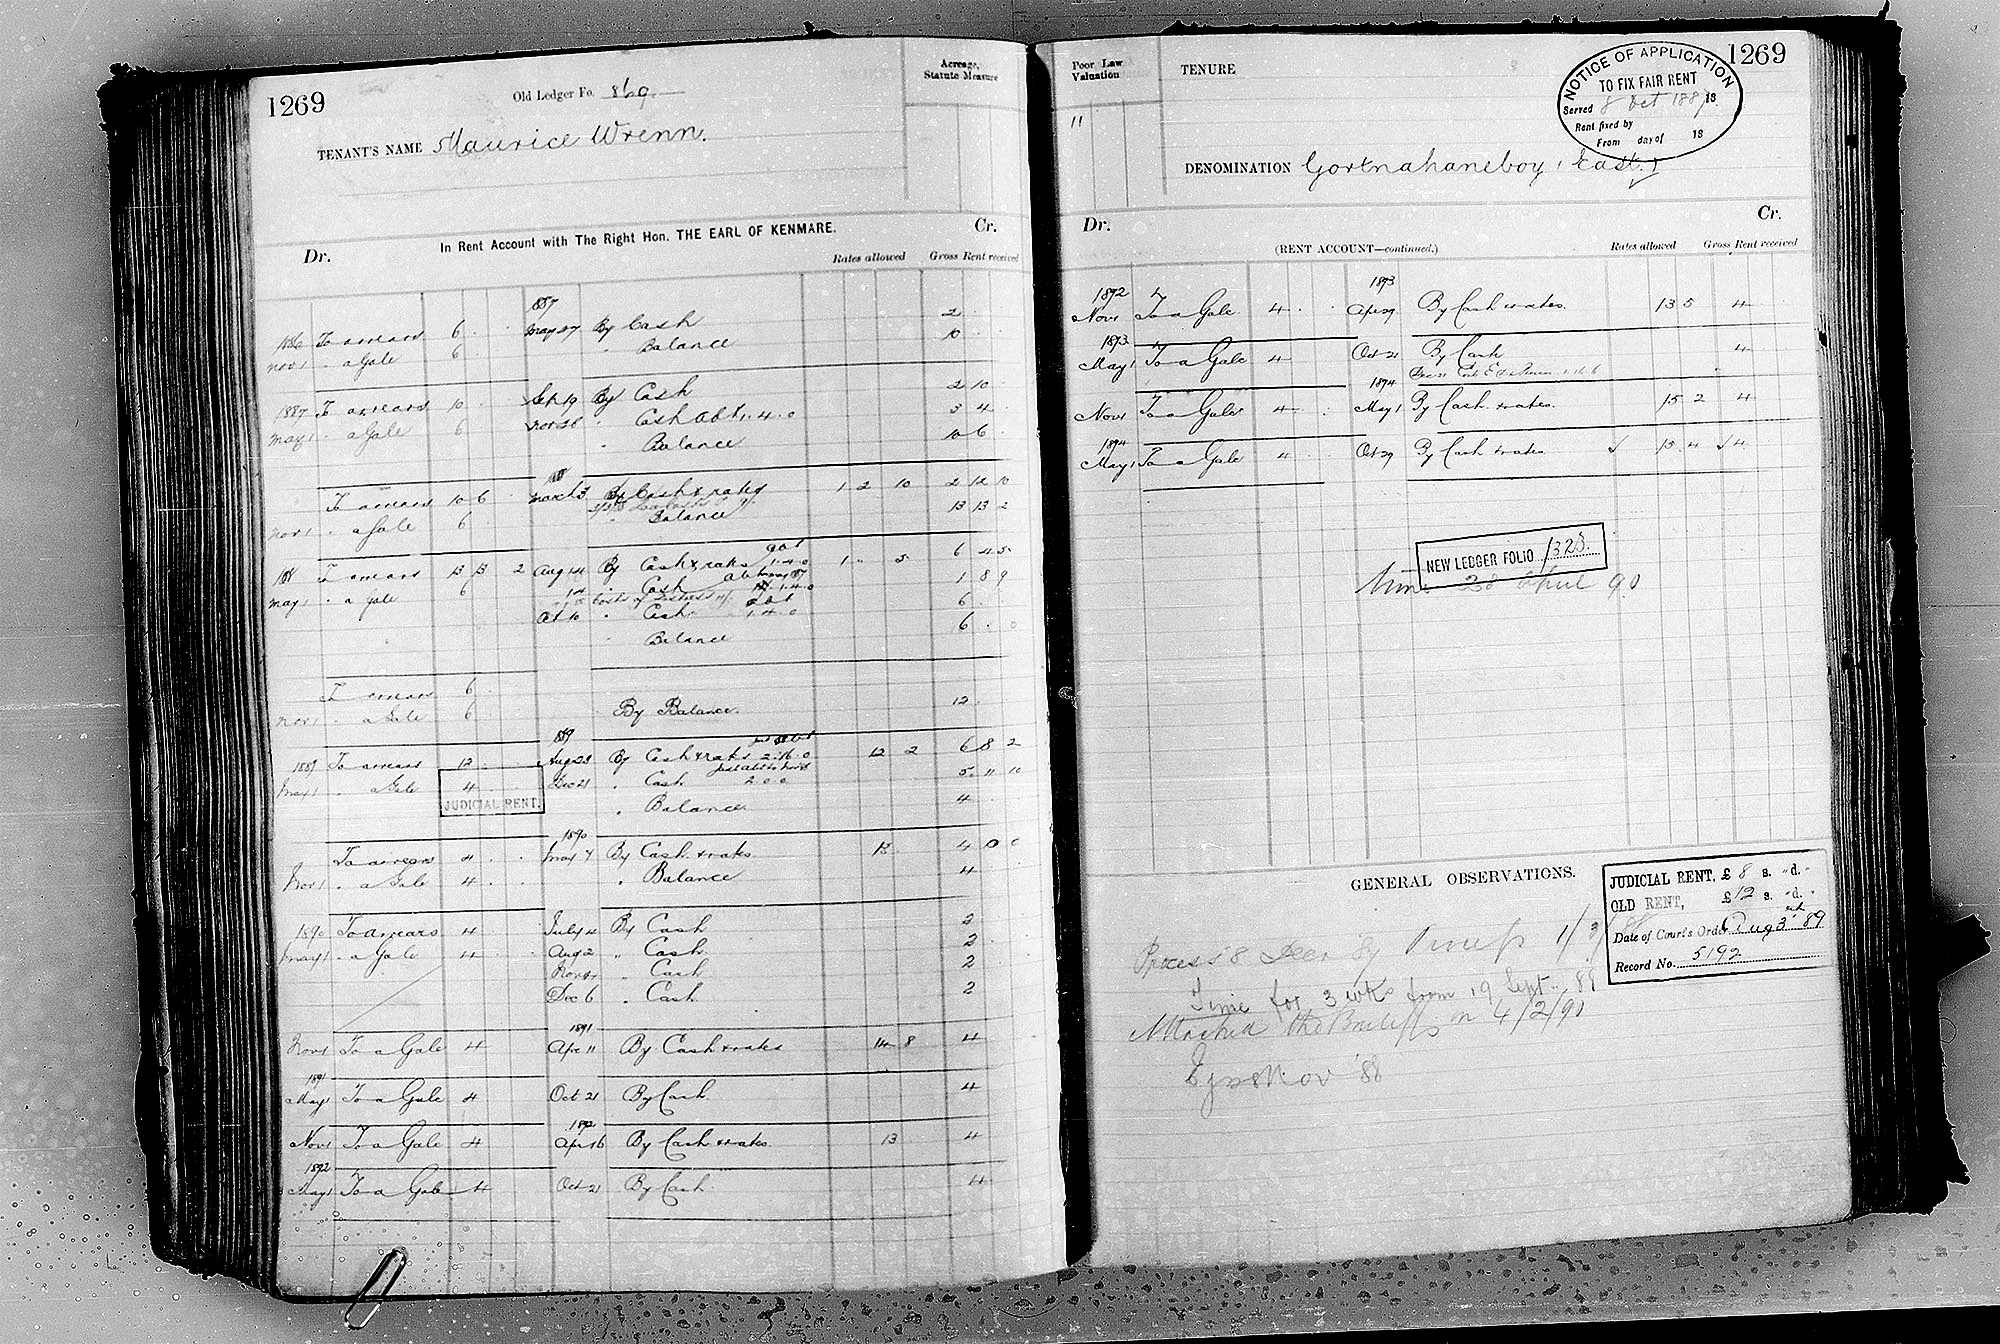 1269
Old Ledger Fo. 869
Acreage, Statute Measure
TENANT'S NAME Maurice Wrenn.
In Rent Account with The Right Hon. THE EARL OF KENMARE.
Dr. Cr.
Rates allowed Gross Rent received
1887
1886 To arrears 6 May 27 By Cash 2
Nov 1 " a Gale 6 " Balance 10
1887 To arrears 10 Sep 19 By Cash 2 10
May 1 " a Gale 6 Nov 26 " Cash abt 1.4.0 3 4
" Balance 10 6
To arrears 10 6 March 3 By Cash & rates 1 2 10 2 12 10
Nov 1 " a Gale 6 " Balance 13 13 2
To arrears 13 13 2 Aug 14 By Cash & rates 1.4.0 1 5 6 4 5
May 1 " a Gale 6 14 " Cash 1 8 9
Oct 10 " Cash 1.4.0 6
" Balance 6 0
To arrears 6
Nov 1 " a Gale 6 By Balance 12
1889
1889 To arrears 12 Aug 23 By Cash & rates 2.16.0 12 2 6 8 2
May 1 " a Gale 4 Dec 21 " Cash 2.0.0 5 11 10
JUDICIAL RENT.
" Balance 4
1890
To arrears 4 May 7 By Cash & rates 13 4 0 0
Nov 1 " a Gale 4 " Balance 4
1890 To arrears 4 July 4 By Cash 2
May 1 " a Gale 4 Aug 2 " Cash 2
Nov " Cash 2
Dec 6 " Cash 2
1891
Nov 1 To a Gale 4 Apr 11 By Cash & rates 14 8 4
1891
May 1 To a Gale 4 Oct 21 By Cash 4
1892
Nov 1 To a Gale 4 Apr 16 By Cash & rates 13 4
1892
May 1 To a Gale 4 Oct 21 By Cash 4
Poor Law Valuation
TENURE
1269
NOTICE OF APPLICATION
TO FIX FAIR RENT
Served 8 Oct 1887 18
Rent fixed by
From day of 18
11
DENOMINATION Gortnahaneboy (East.)
Dr. Cr.
(RENT ACCOUNT—continued.)
Rates allowed Gross Rent received
1892 1893
Nov 1 To a Gale 4 Apr 29 By Cash & rates. 13 5 4
1893
May 1 To a Gale 4 Oct 21 By Cash 4
1894
Nov 1 To a Gale 4 May 1 By Cash & rates. 15 2 4
1894
May 1 To a Gale 4 Oct 29 By Cash & rates 15 4 4
NEW LEDGER FOLIO 1323
Time 28 April 90
GENERAL OBSERVATIONS.
JUDICIAL RENT, £ 8 s. " d. "
OLD RENT, £ 12 s. " d. "
Date of Court's Order Aug 3rd 89
Record No. 5192
Process 8 Decr by
Time for 3 wks from 19 Sept 89
Attached the Bailiffs on 4/2/90
Nov '88